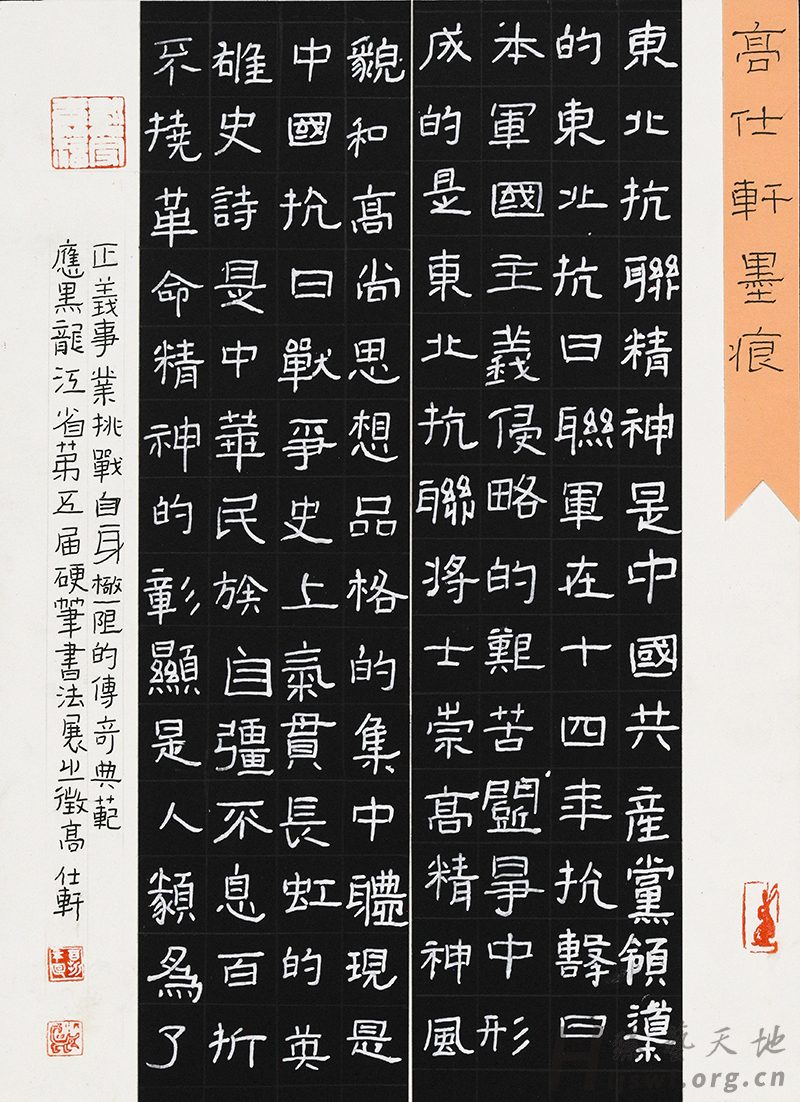 高仕軒墨痕
東北抗聯精神是中國共產黨領導
的東北抗日聯軍在十四年抗擊日
本軍國主義侵略的艱苦鬭爭中形
成的是東北抗聯將士崇高精神風
貌和高尚思想品格的集中體現是
中國抗日戰爭史上氣貫長虹的英
雄史詩是中華民族自彊不息百折
不撓革命精神的彰顯是人類為了
正義事業挑戰自身極限的傳奇典範
應黑龍江省第五屆硬筆書法展之徵高仕軒
天地
.org.cn